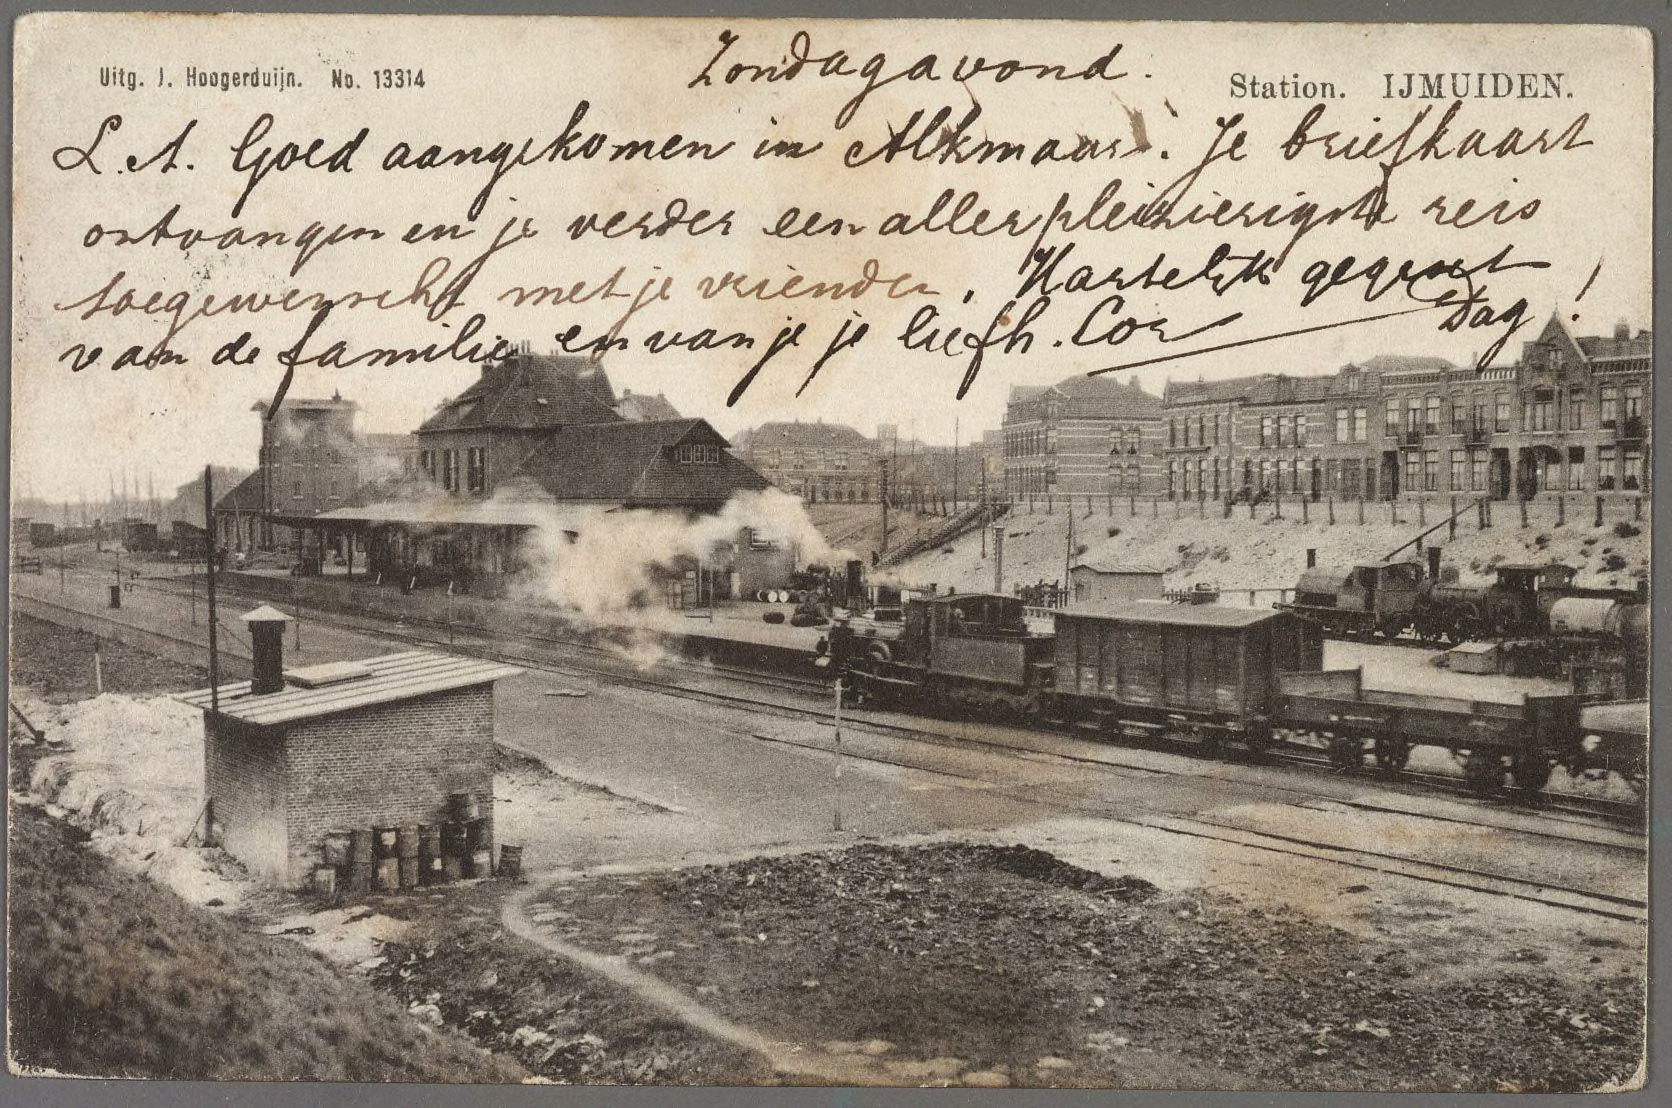 Uitg. J. Hoogerduijn. No. 13314
Zondagavond.
Station. IJMUIDEN.
L. A. Goed aangekomen in Alkmaar. Je briefkaart
ontvangen en je verder een allerpleizierigste reis
toegewenscht met je vrienden. Hartelijk gegroet
van de familie en van je je liefh. Cor Dag!